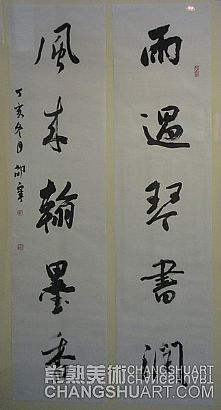 雨過琴書潤
風來翰墨香
丁亥冬月
常熟美術|CHANGSHUART